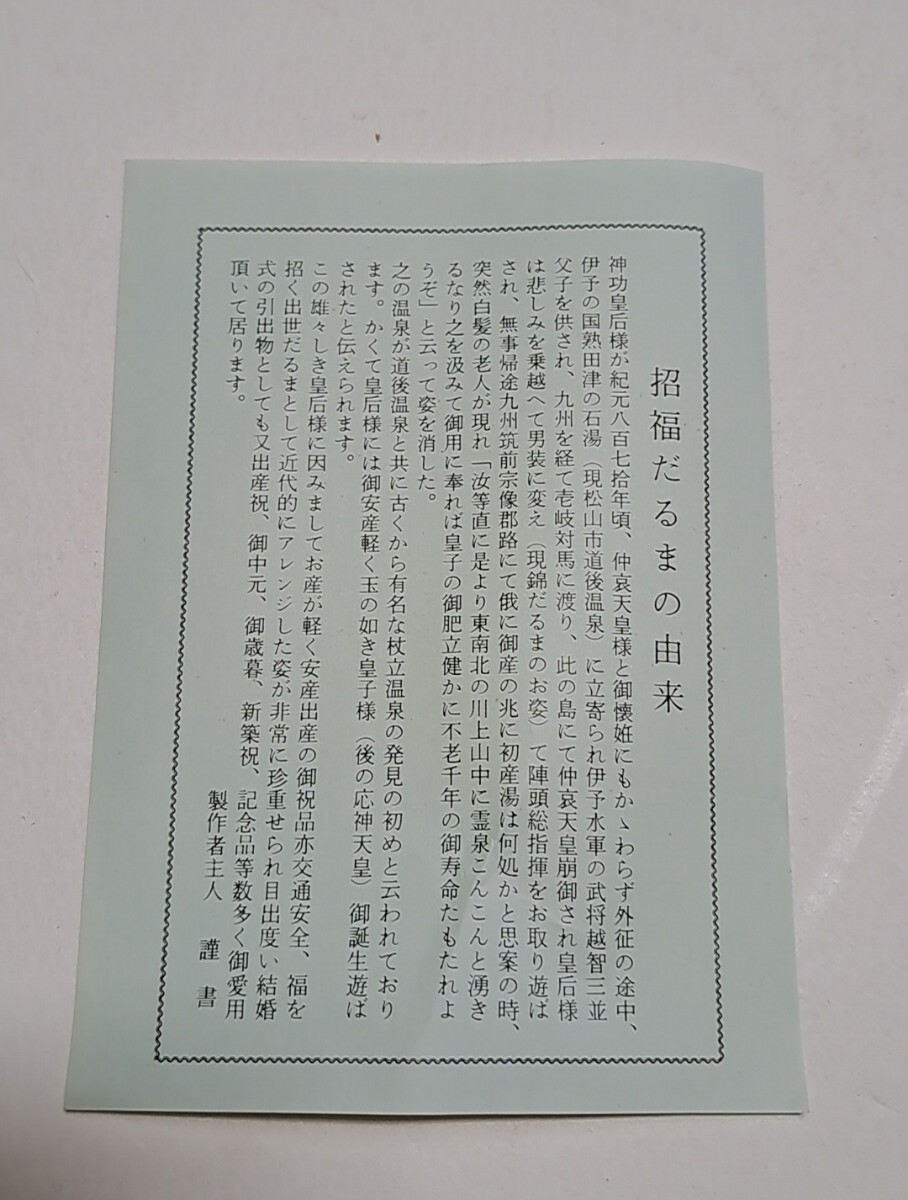 招福だるまの由来
神功皇后様が紀元八百七拾年頃、仲哀天皇様と御懐姙にもかゝわらず外征の途中、
伊予の国熟田津の石湯（現松山市道後温泉）に立寄られ伊予水軍の武将越智三並
父子を供され、九州を経て壱岐対馬に渡り、此の島にて仲哀天皇崩御され皇后様
は悲しみを乗越へて男装に変え（現錦だるまのお姿）て陣頭総指揮をお取り遊ば
され、無事帰途九州筑前宗像郡路にて俄に御産の兆に初産湯は何処かと思案の時、
突然白髪の老人が現れ「汝等直に是より東南北の川上山中に霊泉こんこんと湧き
るなり之を汲みて御用に奉れば皇子の御肥立健かに不老千年の御寿命たもたれよ
うぞ」と云って姿を消した。
之の温泉が道後温泉と共に古くから有名な杖立温泉の発見の初めと云われており
ます。かくて皇后様には御安産軽く玉の如き皇子様（後の応神天皇）御誕生遊ば
されたと伝えられます。
この雄々しき皇后様に因みましてお産が軽く安産出産の御祝品亦交通安全、福を
招く出世だるまとして近代的にアレンジした姿が非常に珍重せられ目出度い結婚
式の引出物としても又出産祝、御中元、御歳暮、新築祝、記念品等数多く御愛用
頂いて居ります。
製作者主人　謹書